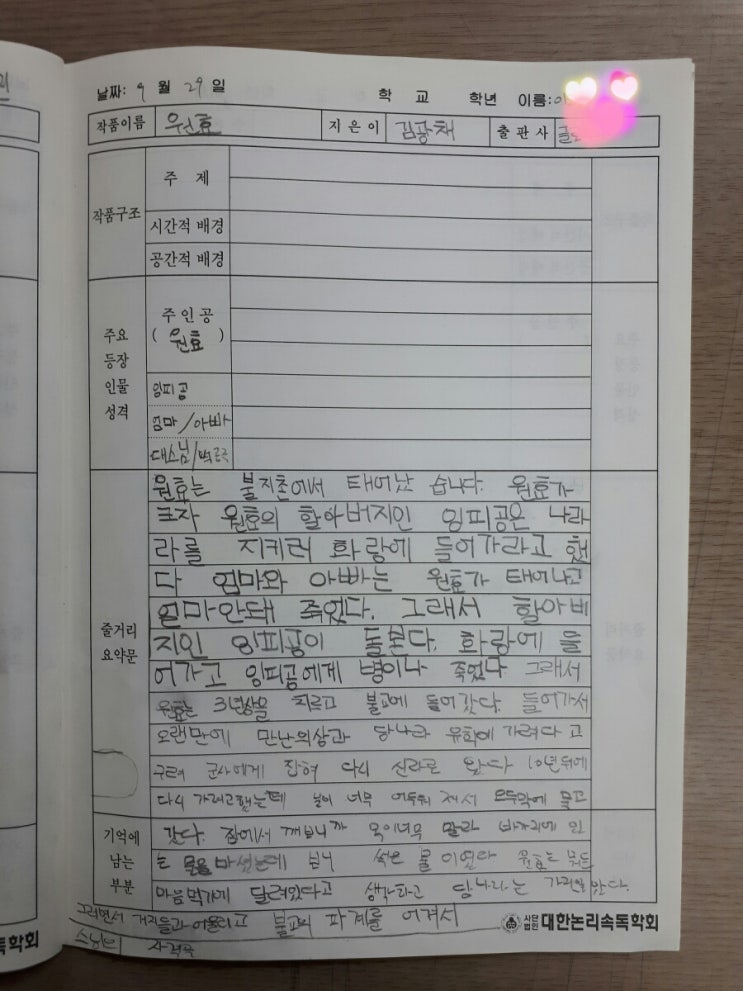 날짜: 9 월 29 일 학 교 학년 이름:
작품이름 원효 지 은 이 김광채 출 판 사
작품구조
주 제
시간적 배경
공간적 배경
주요 등장 인물 성격
주 인 공
( 원효 )
잉피공
엄마/아빠
대스님/
줄거리 요약문
원효는 불지촌에서 태어났 습니다. 원효가
크자 원효의 할아버지인 잉피공은 나라
라를 지키러 화랑에 들어가라고 했
다 엄마와 아빠는 원효가 태어나고
얼마안돼 죽었다. 그래서 할아버
지인 잉피공이 돌본다. 화랑에 들
어가고 잉피공에게 병이나 죽었다 그래서
원효는 3년상을 치르고 불교에 들어갔다. 들어가서
오랜만에 만난의상과 당나라 유학에 가려다 고
구려 군사에게 잡혀 다시 신라로 왔다 10년뒤에
다시 가려고했는데 날이 너무 어두워 져서 모두막에 묵고
기억에 남는 부분
갔다. 잠에서 깨보니까 목이너무 말라 바가지에 있
는 물을 마셨는데 썩은 물 이였다 원효는 뭐든
마음먹기에 달려있다고 생각하고 당나라는 가지않았다.
그러면서 거지들과 어울리고 불교의 파계를 어겨서
스님은
사단법인 대한논리속독학회
독학회